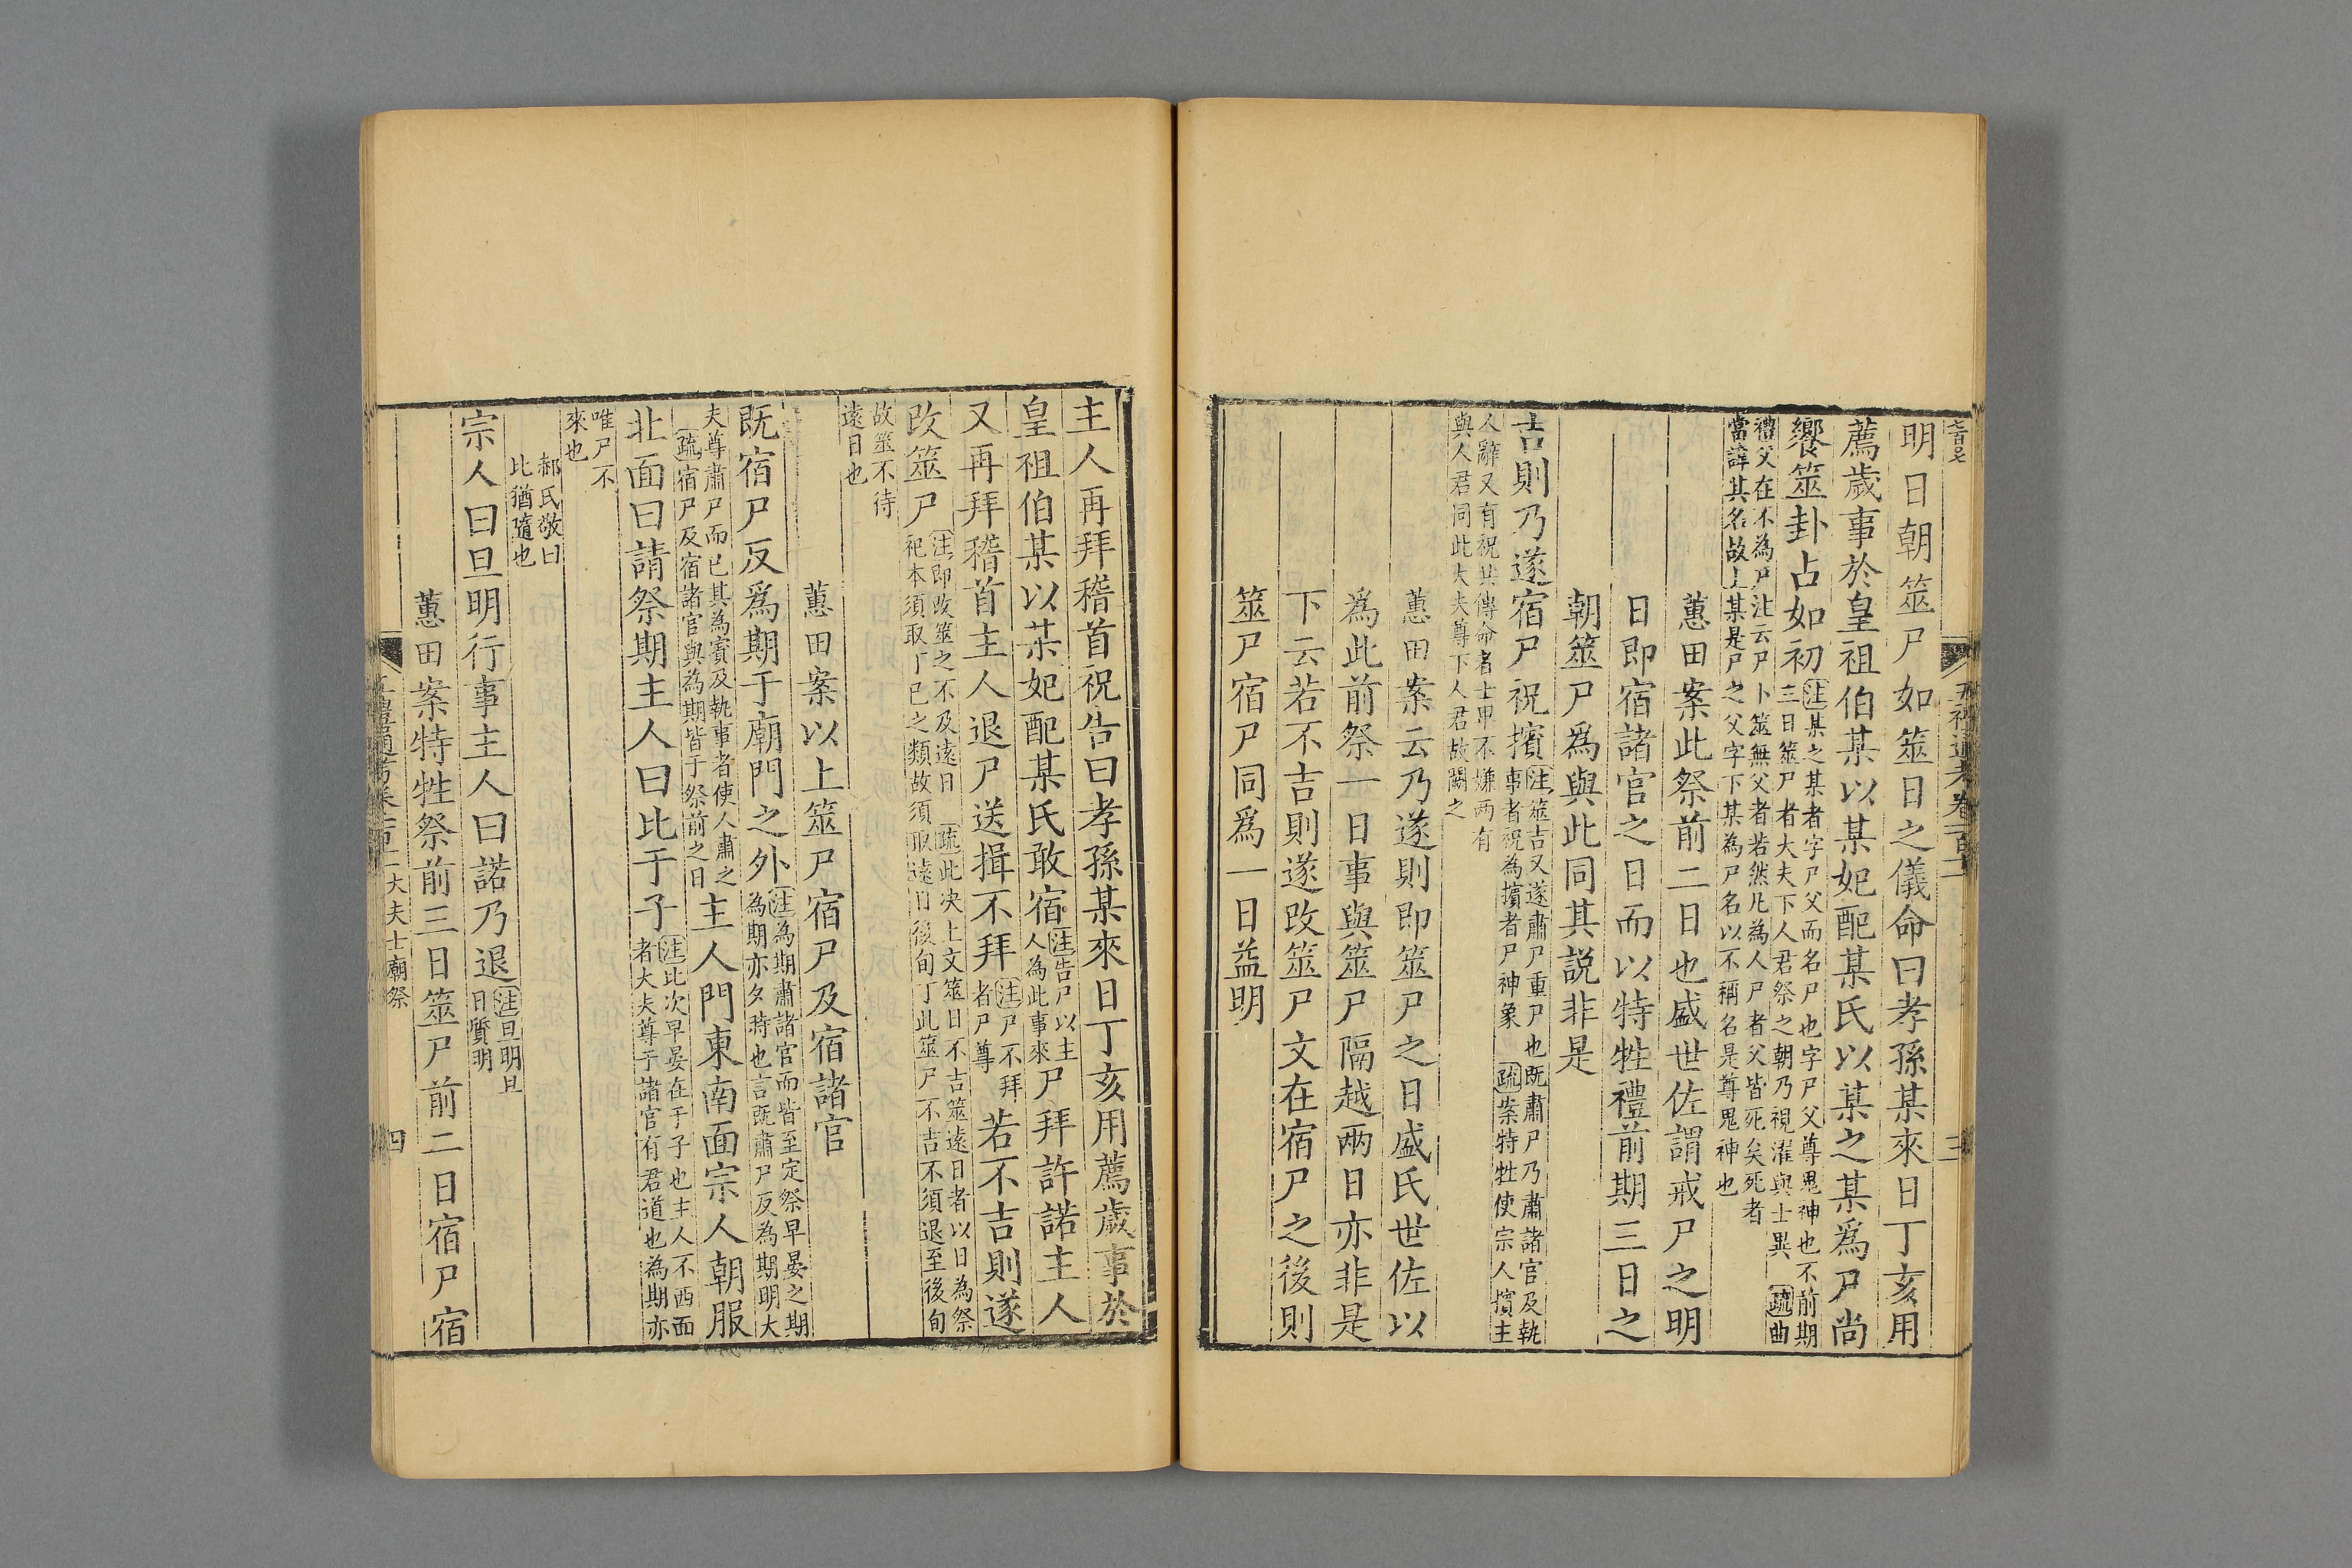 五禮通考卷一百十一
三
明日朝筮尸如筮日之儀命曰孝孫某來日丁亥用
薦歲事於皇祖伯某以某妃配某氏以某之某爲尸尚
饗筮卦占如初
注某之某者字尸父而名尸也字尸父尊鬼神也不前期
三日筮尸者大夫下人君祭之朝乃視濯與士異 疏曲
禮父在不為尸注云尸卜筮無父者若然凡為人尸者父皆死矣死者
當諱其名故上某是尸之父字下某為尸名以不稱名是尊鬼神也
蕙田案此祭前二日也盛世佐謂戒尸之明
日即宿諸官之日而以特牲禮前期三日之
朝筮尸爲與此同其説非是
吉則乃遂宿尸祝擯
注筮吉又遂肅尸重尸也既肅尸乃肅諸官及執
事者祝為擯者尸神象 疏案特牲使宗人擯主
人辭又有祝共傳命者士卑不嫌兩有
與人君同此大夫尊下人君故闕之
蕙田案云乃遂則即筮尸之日盛氏世佐以
為此前祭一日事與筮尸隔越兩日亦非是
下云若不吉則遂改筮尸文在宿尸之後則
筮尸宿尸同爲一日益明
主人再拜稽首祝告曰孝孫某來日丁亥用薦歲事於
皇祖伯某以某妃配某氏敢宿
注告尸以主
人為此事來
尸拜許諾主人
又再拜稽首主人退尸送揖不拜
注尸不拜
者尸尊
若不吉則遂
改筮尸
注即改筮之不及遠日 疏此决上文筮日不吉筮遠日者以日為祭
祀本須取丁已之類故須取遠日後旬丁此筮尸不吉不須退至後旬
故筮不待
遠日也
蕙田案以上筮尸宿尸及宿諸官
既宿尸反爲期于廟門之外
注為期肅諸官而皆至定祭早晏之期
為期亦夕時也言既肅尸反為期明大
夫尊肅尸而已其為賓及執事者使人肅之
疏宿尸及宿諸官與為期皆于祭前之日
主人門東南面宗人朝服
北面曰請祭期主人曰比于子
注此次早晏在于子也主人不西面
者大夫尊于諸官有君道也為期亦
唯尸不
來也
郝氏敬曰
比猶隨也
宗人曰旦明行事主人曰諾乃退
注旦明旦
日質明
蕙田案特牲祭前三日筮尸前二日宿尸宿
大夫士廟祭
四